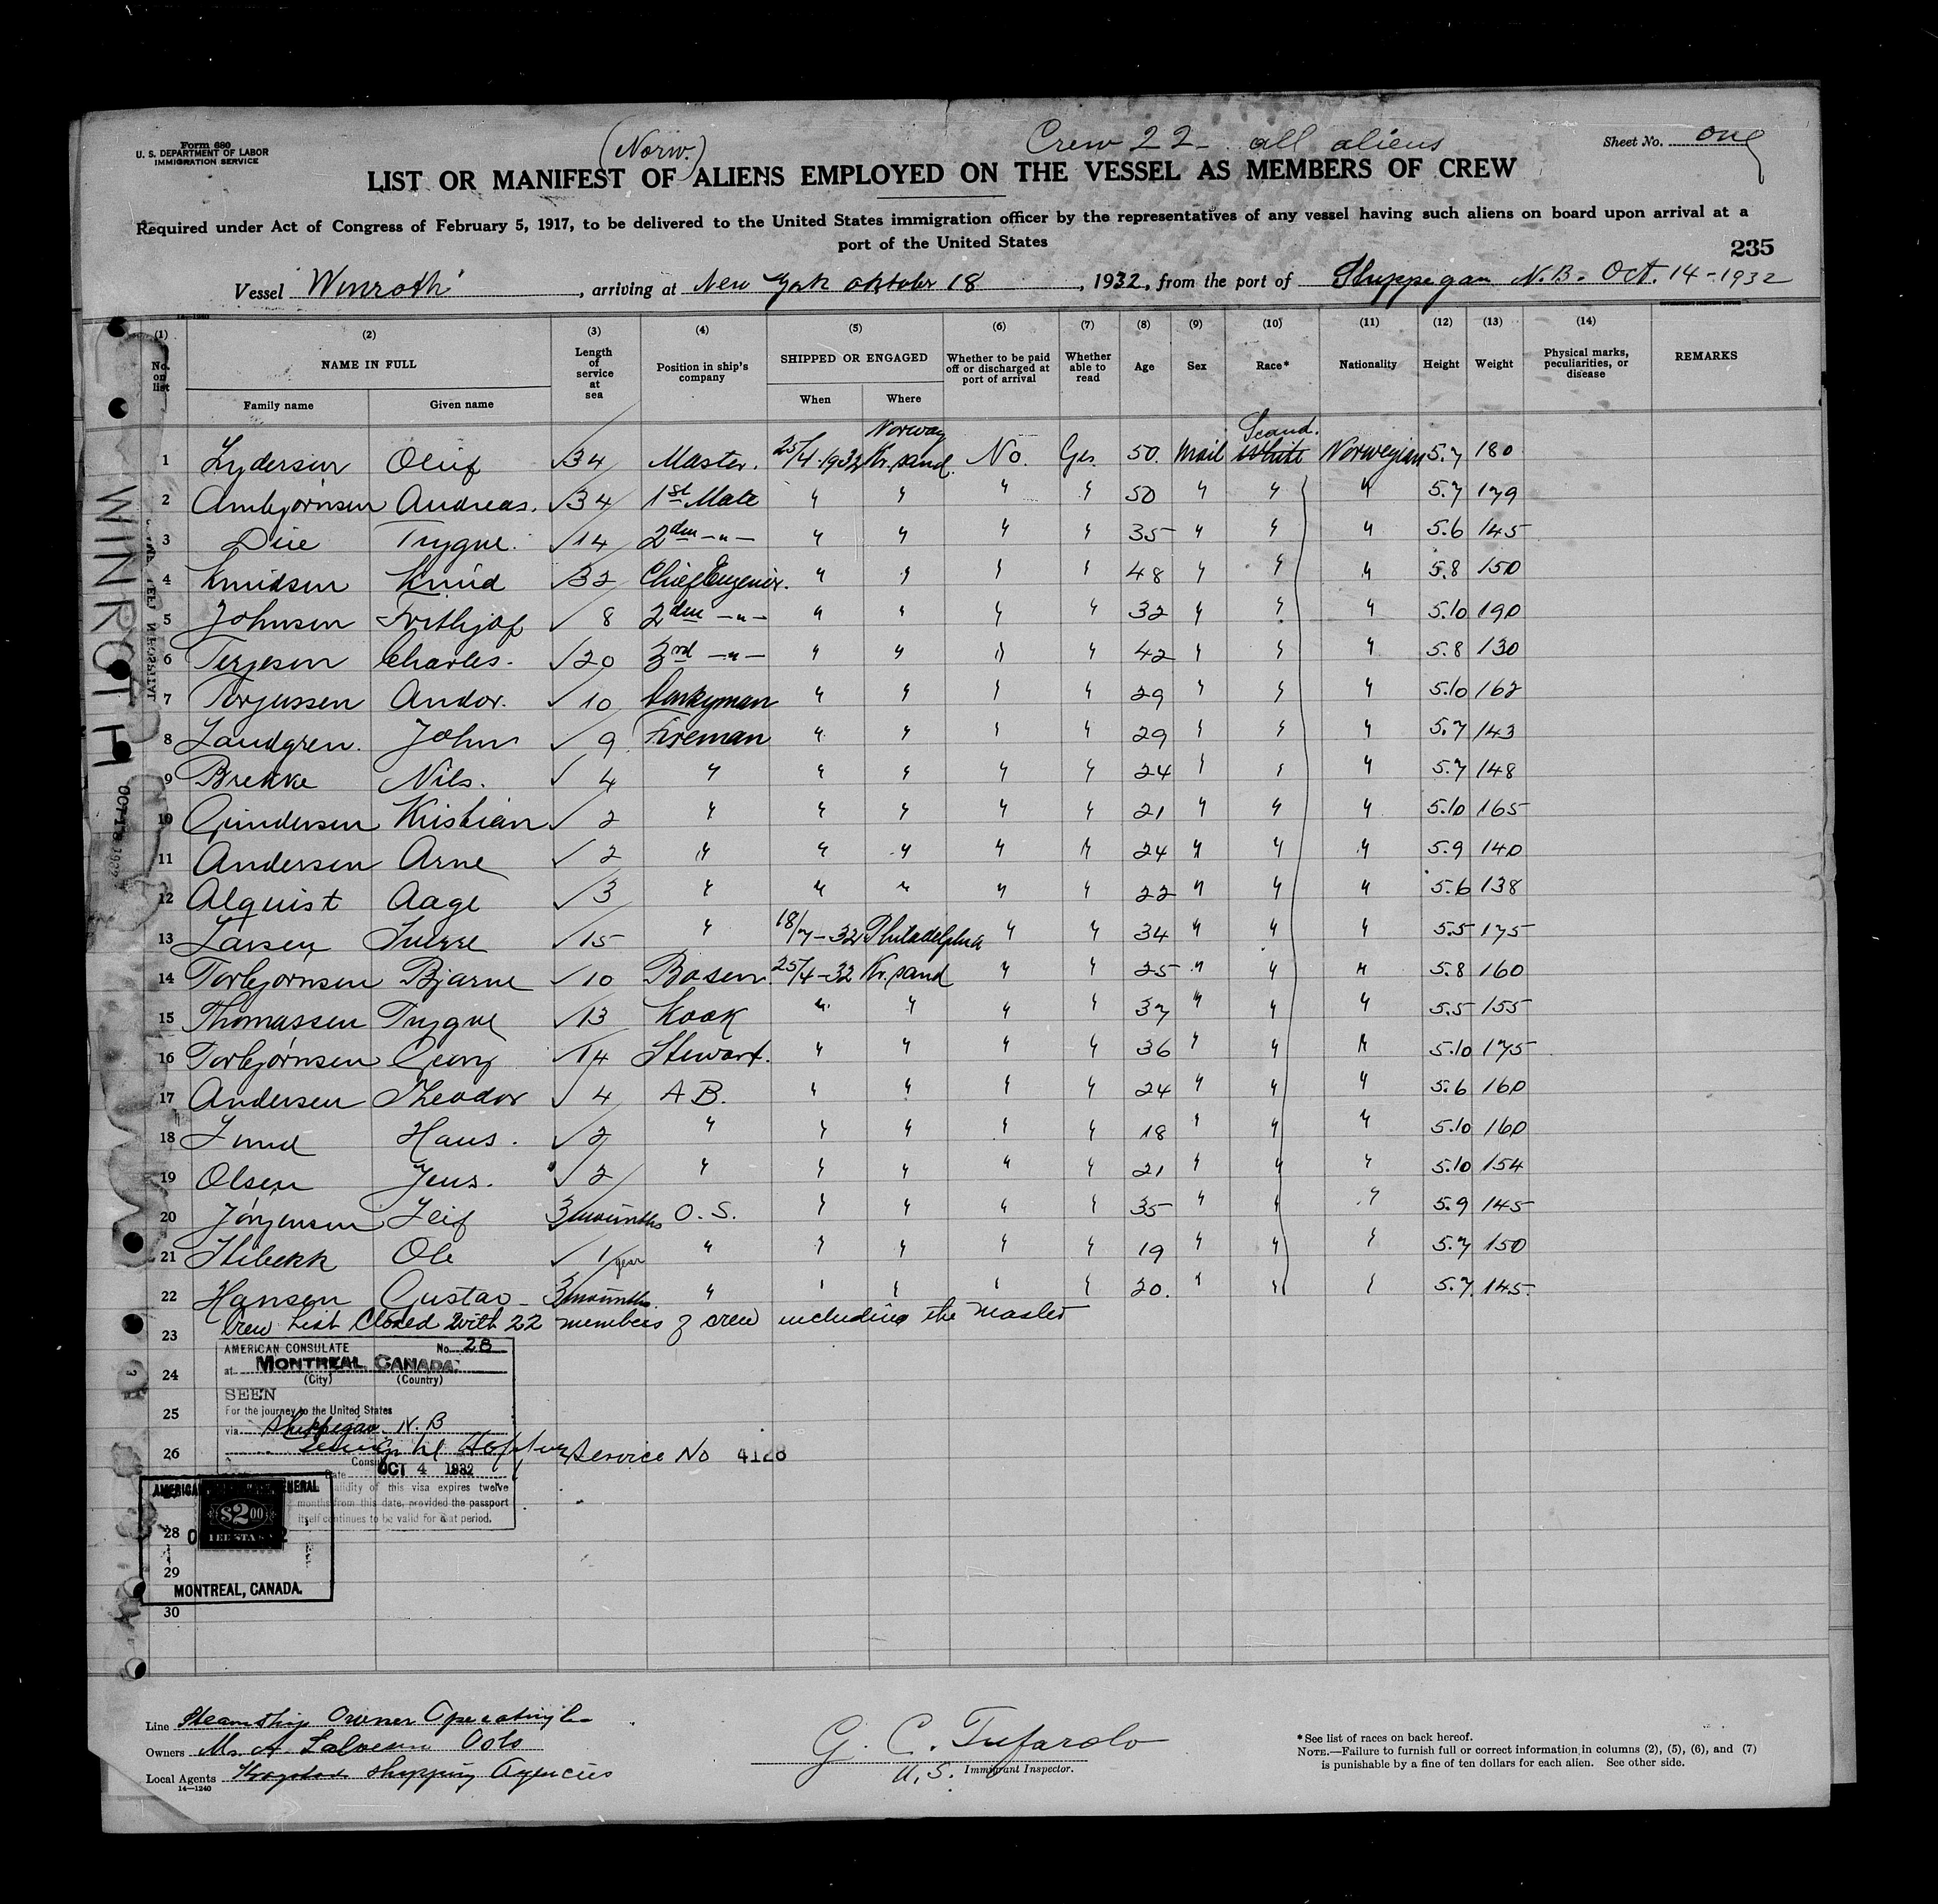 Form 680
U. S. DEPARTMENT OF LABOR
IMMIGRATION SERVICE
(Norw.)
Crew 22 - all aliens
Sheet No. one
LIST OR MANIFEST OF ALIENS EMPLOYED ON THE VESSEL AS MEMBERS OF CREW
Required under Act of Congress of February 5, 1917, to be delivered to the United States immigration officer by the representatives of any vessel having such aliens on board upon arrival at a
port of the United States
235
Vessel Winroth, arriving at New York oktober 18, 1932, from the port of Shippegan N.B. Oct. 14-1932
(1) (2) (3) (4) (5) (6) (7) (8) (9) (10) (11) (12) (13) (14)
No. on list NAME IN FULL Length of service at sea Position in ship's company SHIPPED OR ENGAGED Whether to be paid off or discharged at port of arrival Whether able to read Age Sex Race* Nationality Height Weight Physical marks, peculiarities, or disease REMARKS
Family name Given name When Where
Norway Scand.
1 Lydersen Oluf √34 Master. 25/4-1932 Kr.sand. No. Yes. 50. Mail White Norwegian 5.7 180
2 Ambjørnsen Andreas. √34 1st Mate " " " " 50 " " " 5.7 179
3 Due Trygve. √14 2den -"- " " " " 35 " " " 5.6 145
4 Knudsen Knud √32 Chief Engenier. " " " " 48 " " " 5.8 150
5 Johnsen Frithjof √ 8 2den -"- " " " " 32 " " " 5.10 190
6 Terjesen Charles. √20 3rd -"- " " " " 42 " " " 5.8 130
7 Torjussen Andor. √10 Donkyman " " " " 29 " " " 5.10 162
8 Landgren. John √ 9 Fireman " " " " 29 " " " 5.7 143
9 Brekke Nils. √ 4 " " " " " 24 " " " 5.7 148
10 Gundersen Kristian √ 2 " " " " " 21 " " " 5.10 165
11 Andersen Arne √ 2 " " " " " 24 " " " 5.9 140
12 Alquist Aage √ 3 " " " " " 22 " " " 5.6 138
13 Larsen Sverre √15 " 18/7-32 Philadelphia " " 34 " " " 5.5 175
14 Torbjørnsen Bjarne √10 Bosen 25/4-32 Kr.sand " " 25 " " " 5.8 160
15 Thomassen Trygve √13 Kook " " " " 37 " " " 5.5 155
16 Torbjørnsen Georg √14 Stewart. " " " " 36 " " " 5.10 175
17 Andersen Theodor √ 4 A B. " " " " 24 " " " 5.6 160
18 Lund Hans. √ 2 " " " " " 18 " " " 5.10 160
19 Olsen Jens. √ 2 " " " " " 21 " " " 5.10 154
20 Jørgensen Leif 3 mounths O. S. " " " " 35 " " " 5.9 145
21 Stibekk Ole √ 1 year " " " " " 19 " " " 5.7 150
22 Hansen Gustav 3 mounths. " " " " " 20. " " " 5.7 145.
Crew list Closed with 22 members of crew including the Master
23
24
25
26
28
29
30
AMERICAN CONSULATE No. 28
at MONTREAL CANADA
(City) (Country)
SEEN
For the journey to the United States
via Shippegan N.B
Service No 4128
Consul
Date OCT 4 1932
validity of this visa expires twelve
months from this date, provided the passport
itself continues to be valid for that period.
$2.00
MONTREAL, CANADA.
WINROTH
Line Steamship Owner Operating Co
Owners
Local Agents shipping Agencies
14—1240
G. C. Tufarolo
U.S. Immigrant Inspector.
*See list of races on back hereof.
NOTE.—Failure to furnish full or correct information in columns (2), (5), (6), and (7)
is punishable by a fine of ten dollars for each alien. See other side.